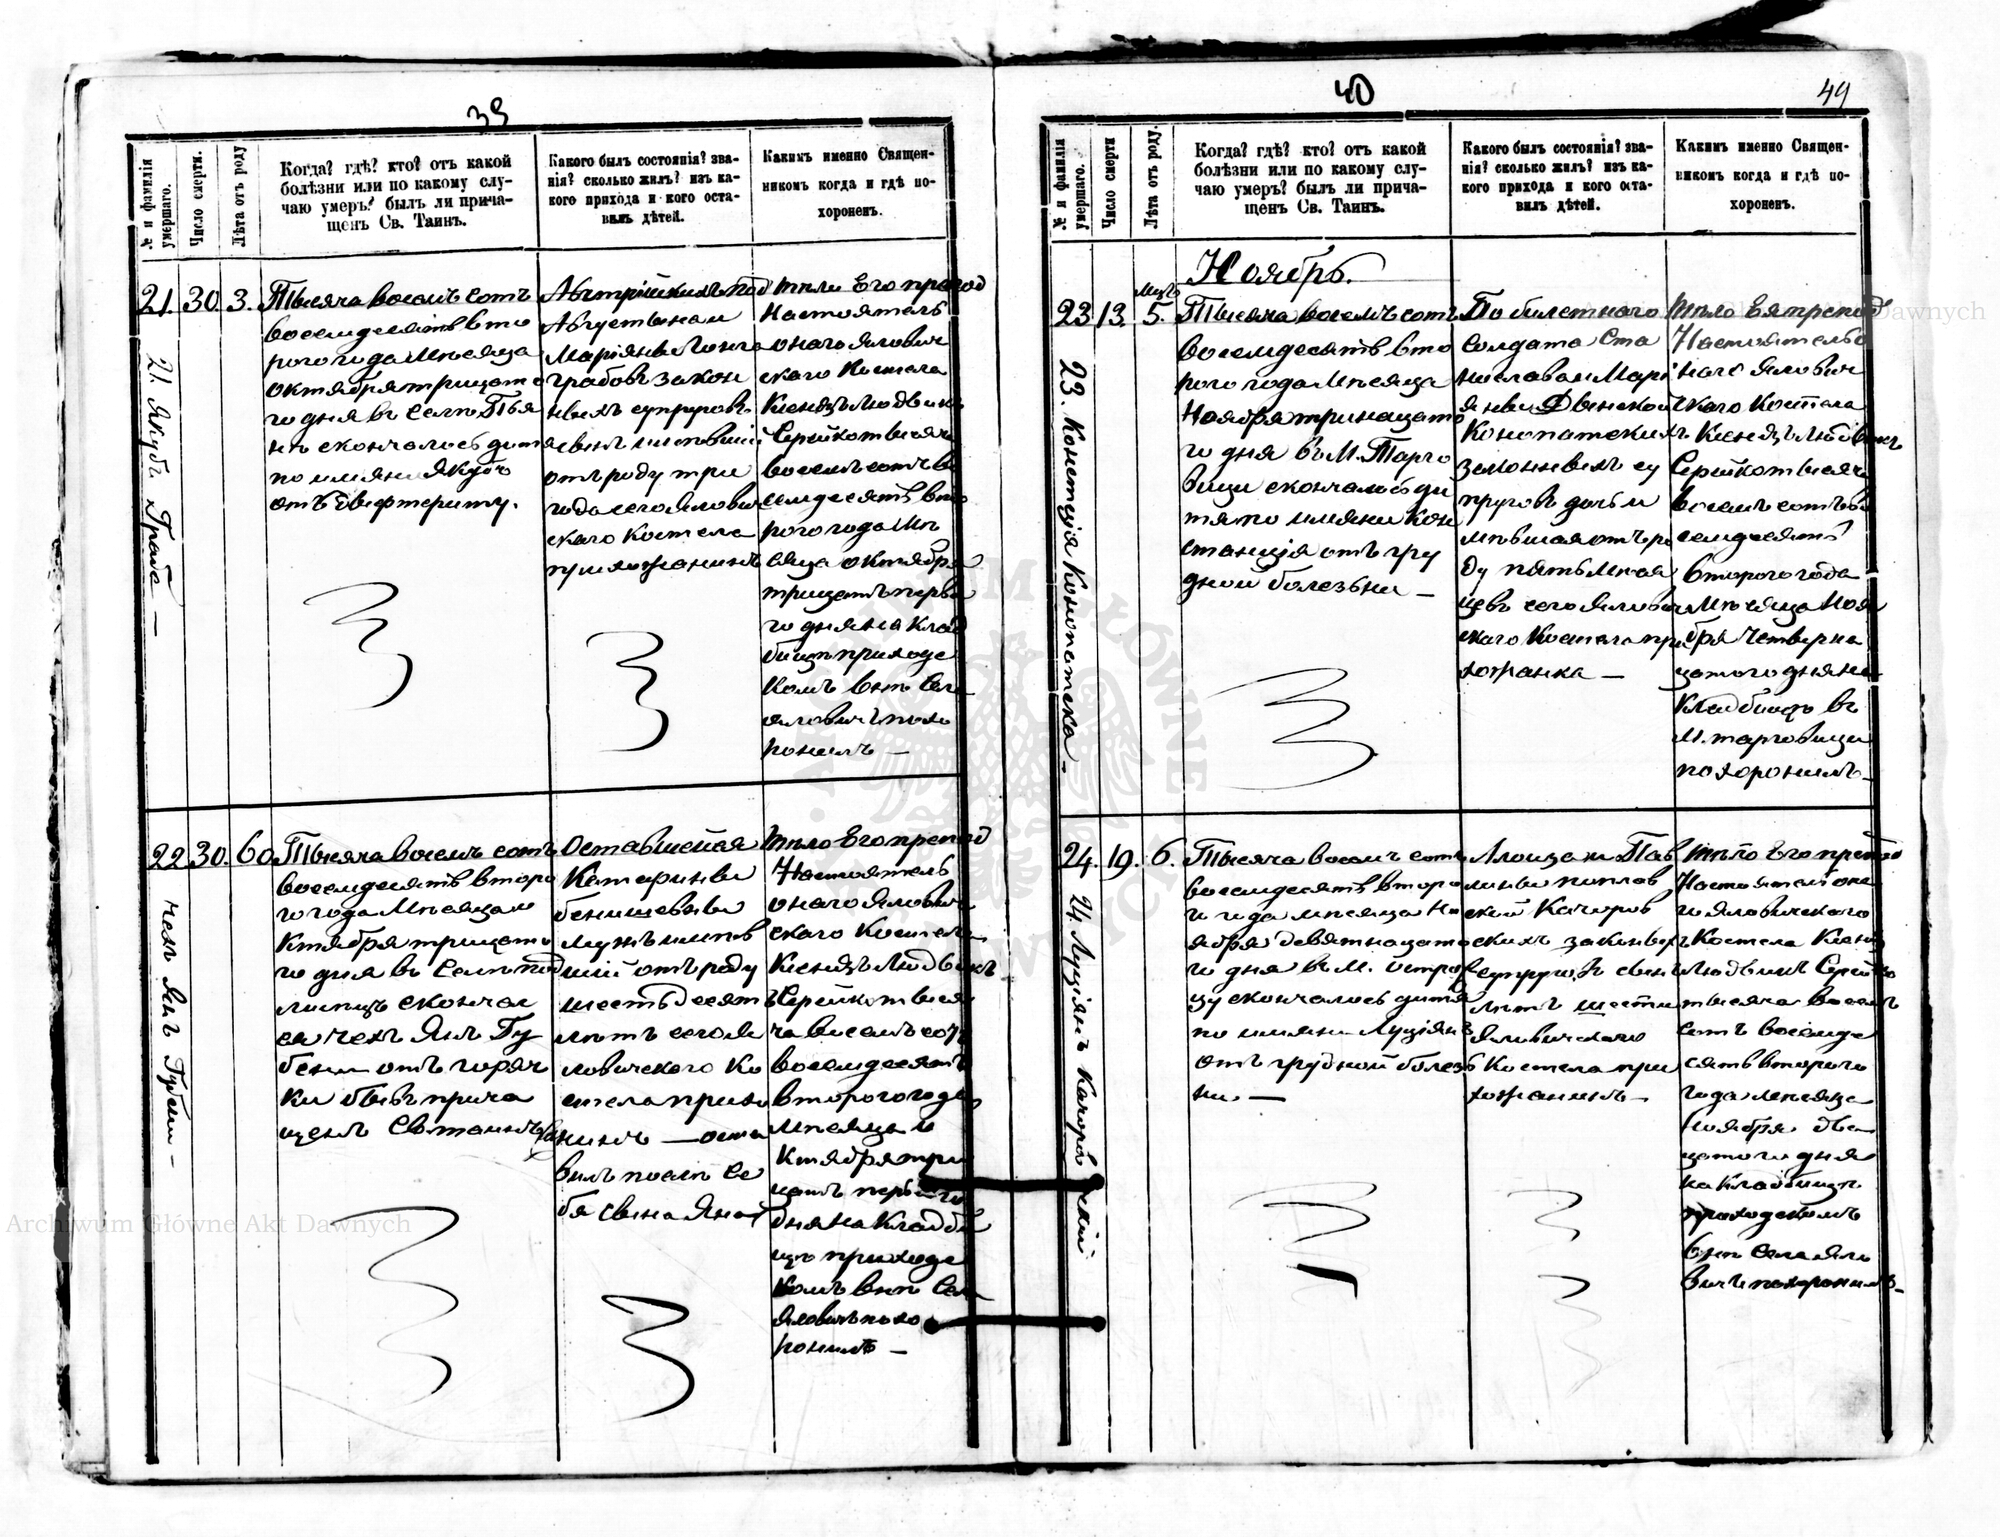 39
№ и фамилія умершаго.
Число смерти.
Лѣта отъ роду
Когда? гдѣ? кто? отъ какой
болѣзни или по какому слу-
чаю умеръ? былъ ли прича-
щенъ Св. Таинъ.
Какого былъ состоянія? зва-
нія? сколько жилъ? изъ ка-
кого прихода и кого оста-
вилъ дѣтей.
Какимъ именно Священ-
никомъ когда и гдѣ по-
хороненъ.
21. 30. 3.
21. Якубъ Граб
Тысяча восемь сотъ
восемдесятъ вто
рого года Мѣсяца
Октября трицато
го дня въ Селѣ
скончалось дитя
по имяни Якубъ
отъ дифтериту.
Австрійскихъ под
Августына и
Маріянны
Грабовъ закон
ныхъ супруговъ
сынъ имѣвшій
отъ роду три
года сего Ялович
скаго Костела
прихожанинъ
тѣло Его препод
Настоятель
онаго Ялович
скаго Костела
Ксендзъ Людвикъ
Серейко тысяча
восемь сотъ во
семдесятъ вто
рого года Мѣ
сяца Октября
трицать перва
го дня на Клад
бищѣ приходс
комъ внѣ Села
Яловичъ похо
ронилъ —
22. 30. 60.
чехъ Янъ Губени —
Тысяча восемь сотъ
восемдесятъ второ
го года Мѣсяца О
ктября трицато
го дня въ Селѣ Под
липцъ скончал
ся чехъ Янъ Гу
бени отъ горяч
ки бывъ прича
щенъ Св. таинъ
Оставшейся
Катарины
мужъ имѣв
шій отъ роду
шестьдесятъ
лѣтъ сего Я
ловичского Ко
стела прихо
нинъ — оста
вилъ послѣ се
бя сына Яна
тѣло Его препод
Настоятель
онаго Ялович
скаго Костела
Ксендзъ Людвикъ
Серейко тыся
ча восемь сотъ
восемдесятъ
второго года
Мѣсяца О
ктября три
цать первого
дня на Кладби
щѣ приходс
комъ внѣ Села
Яловичъ похо
ронилъ —
40
49
№ и фамилія умершаго.
Число смерти
Лѣта отъ роду.
Когда? гдѣ? кто? отъ какой
болѣзни или по какому слу-
чаю умеръ? былъ ли прича-
щенъ Св. Таинъ.
Какого былъ состоянія? зва-
нія? сколько жилъ? изъ ка-
кого прихода и кого оста-
вилъ дѣтей.
Какимъ именно Священ-
никомъ когда и гдѣ по-
хороненъ.
Ноябрь.
23 13. Мцъ 5.
23. Констанція Конопатска —
Тысяча восемь сотъ
восемдесятъ вто
рого года Мѣсяца
Ноября тринацато
го дня въ М. Тарго
вици скончалось ди
тя по имяни Кон
станція отъ гру
дной болезьни —
По билетного
солдата Ста
нислава и Марі
янны
Конопатскихъ
законныхъ су
пруговъ дочь и
мѣвшая отъ ро
ду пять Мѣся
цевъ сего Ялович
скаго Костела при
хожанка —
тѣло Ея препод
Настоятель о
наго Ялович
скаго Костела
Ксендзъ Людвикъ
Серейко тысяча
восемь сотъ во
семдесятъ
второго года
Мѣсяца Ноя
бря Четверна
цатого дня на
Кладбищѣ въ
М. Тарговици
похоронилъ —
24. 19. 6.
24. Луціянъ Качоровскій
Тысяча восемь сотъ
восемдесятъ второ
го года мѣсяца Но
ября девятнацато
го дня въ М. Остро
цу скончалось дитя
по имяни Луціянъ
отъ грудной болезь
ни. —
Алоиза и Пав
лины
Качоров
скихъ законныхъ
супруговъ сынъ
лѣтъ шести
Яловичского
Костела при
хожанинъ —
тѣло Его препод
Настоятель она
го Яловичского
Костела Ксендзъ
Людвикъ Серейко
тысяча восемь
сотъ восемде
сятъ второго
года мѣсяца
Ноября два
цатого дня
на Кладбищѣ
приходскомъ
внѣ Села Яло
вичъ похоронилъ —
Archiwum Główne Akt Dawnych
Archiwum Główne Akt Dawnych